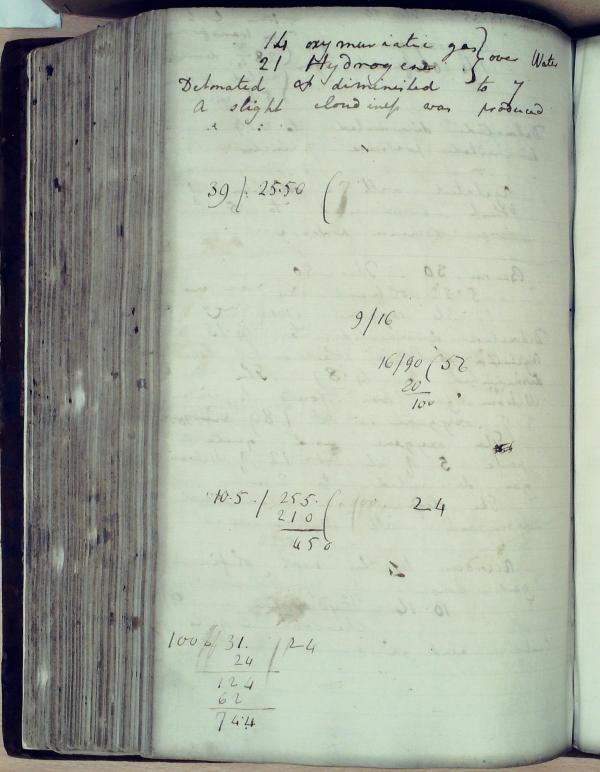 14 oxymuriatic gas } over Water
21 Hydrogene
Detonated & diminished to 7
A slight cloudiness was produced
39 / 25.50 (
9/16
16/90 ( 56
20
100
10.5 / 255. (
210
450
24
5
100 31. / 24
24
124
62
744